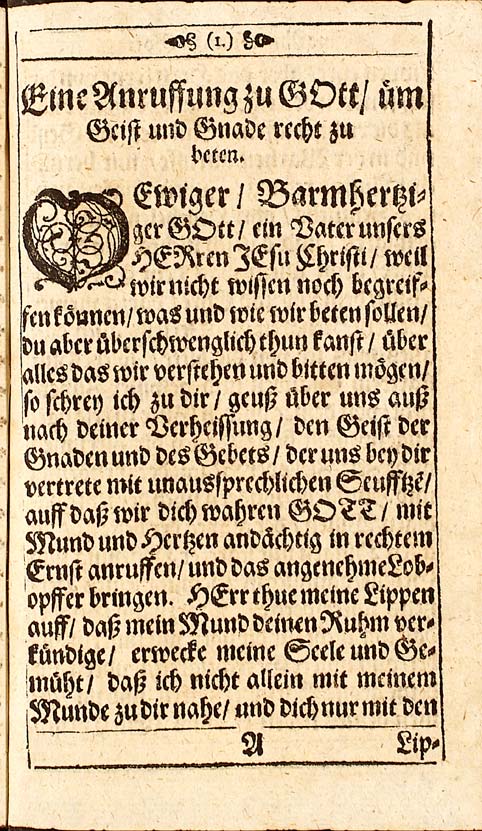 (1.)
Eine Anruffung zu GOtt/ üm
Geist und Gnade recht zu
beten.
O Ewiger / Barmhertzi-
ger GOtt / ein Vater unsers
HERren JEsu Christi / weil
wir nicht wissen noch begreif-
fen können/ was und wie wir beten sollen/
du aber überschwenglich thun kanst / über
alles das wir verstehen und bitten mögen/
so schrey ich zu dir / geuß über uns auß
nach deiner Verheissung / den Geist der
Gnaden und des Gebets / der uns bey dir
vertrete mit unaussprechlichen Seufftzẽ/
auff daß wir dich wahren GOTT / mit
Mund und Hertzen andächtig in rechtem
Ernst anruffen/ und das angenehme Lob-
opffer bringen. HErr thue meine Lippen
auff/ daß mein Mund deinen Ruhm ver-
kündige / erwecke meine Seele und Ge-
müht / daß ich nicht allein mit meinem
Munde zu dir nahe/ und dich nur mit den
A Lip-